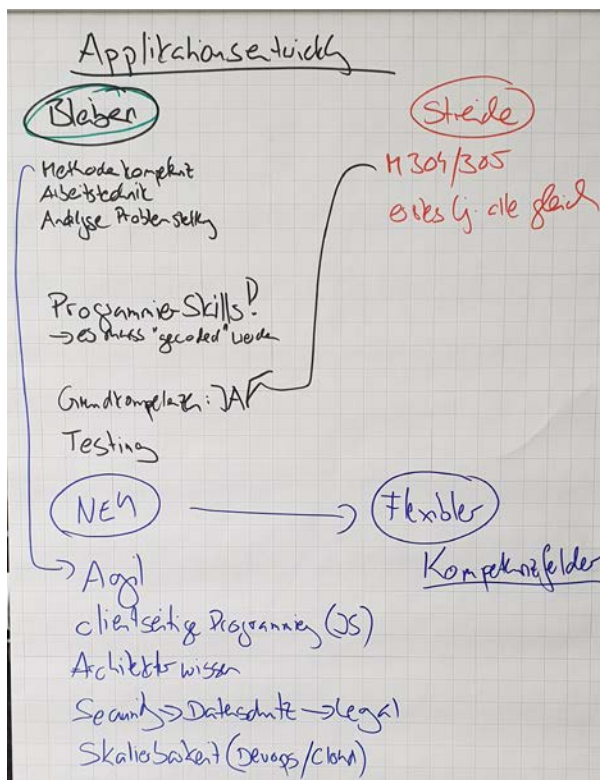 Applikationsentwickl
Bleiben
Methodenkompetenz
Arbeitstechnik
Analyse Problemstellung
Programmier Skills!
→ es muss "gecoded" werden
Grundkompetenzen: JA
Testing
Streiche
M304/305
erstes Lj. alle gleich
NEU → Flexibler
Kompetenzfelder
Agil
clientseitige Programmierung (JS)
Architekturwissen
Security → Datenschutz → Legal
Skalierbarkeit (Devops/Cloud)